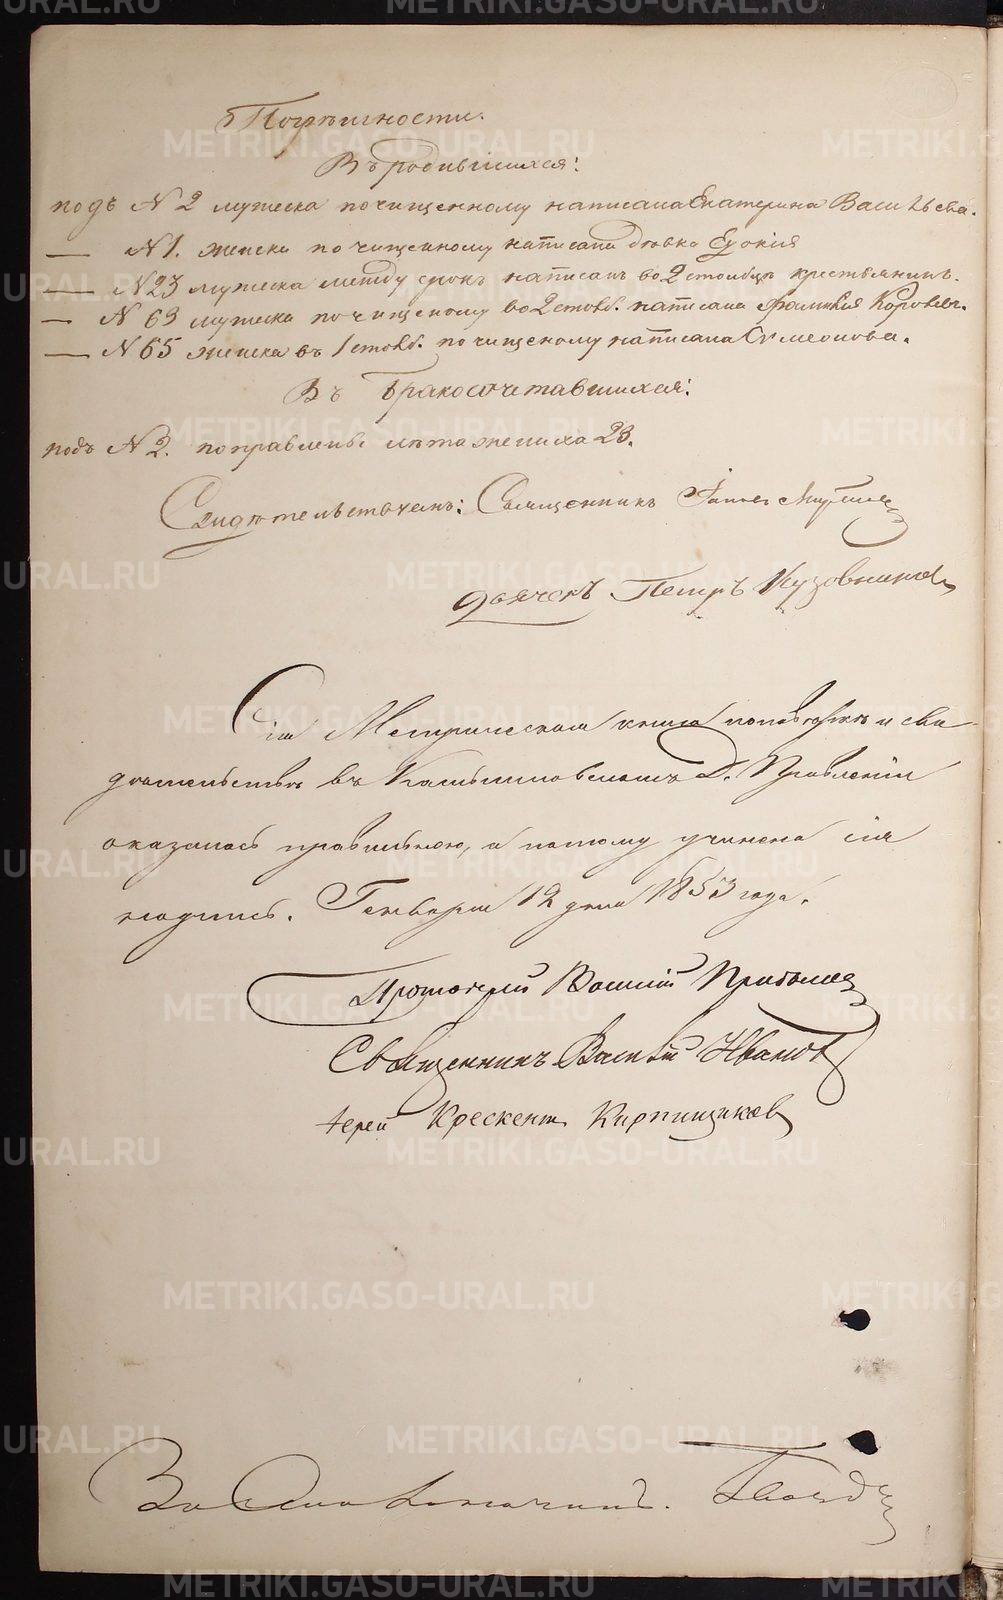 Погрѣшности.
Въ родившихся:
подъ N 2 мужеска по чищенному написана Екатерина Васильева.
— N 1. женска по чищенному написана дѣвка
— N 23 мужеска между строкъ написанъ во 2 столбцѣ крестьянинъ.
— N 63 мужеска по чищеному во 2 столб. написана фамилія
— N 65 женска въ 1 столб. по чищеному написана Симеонова.
Въ бракосочетавшихся:
подъ N 2. поправлены лѣта жениха 23.
Священникъ
дьячекъ Петръ Кузовников
Сія Метрическая книга по повѣркѣ и сви-
дѣтельствѣ въ Камышловскомъ Д. Правленіи
оказалась правильною, а потому учинена сія
подпись. Генваря 12 дня 1853 года.
Протоіерей Василій
Священникъ Василій Иванов
Іерей Крескент Кирпищиков
METRIKI.GASO-URAL.RU